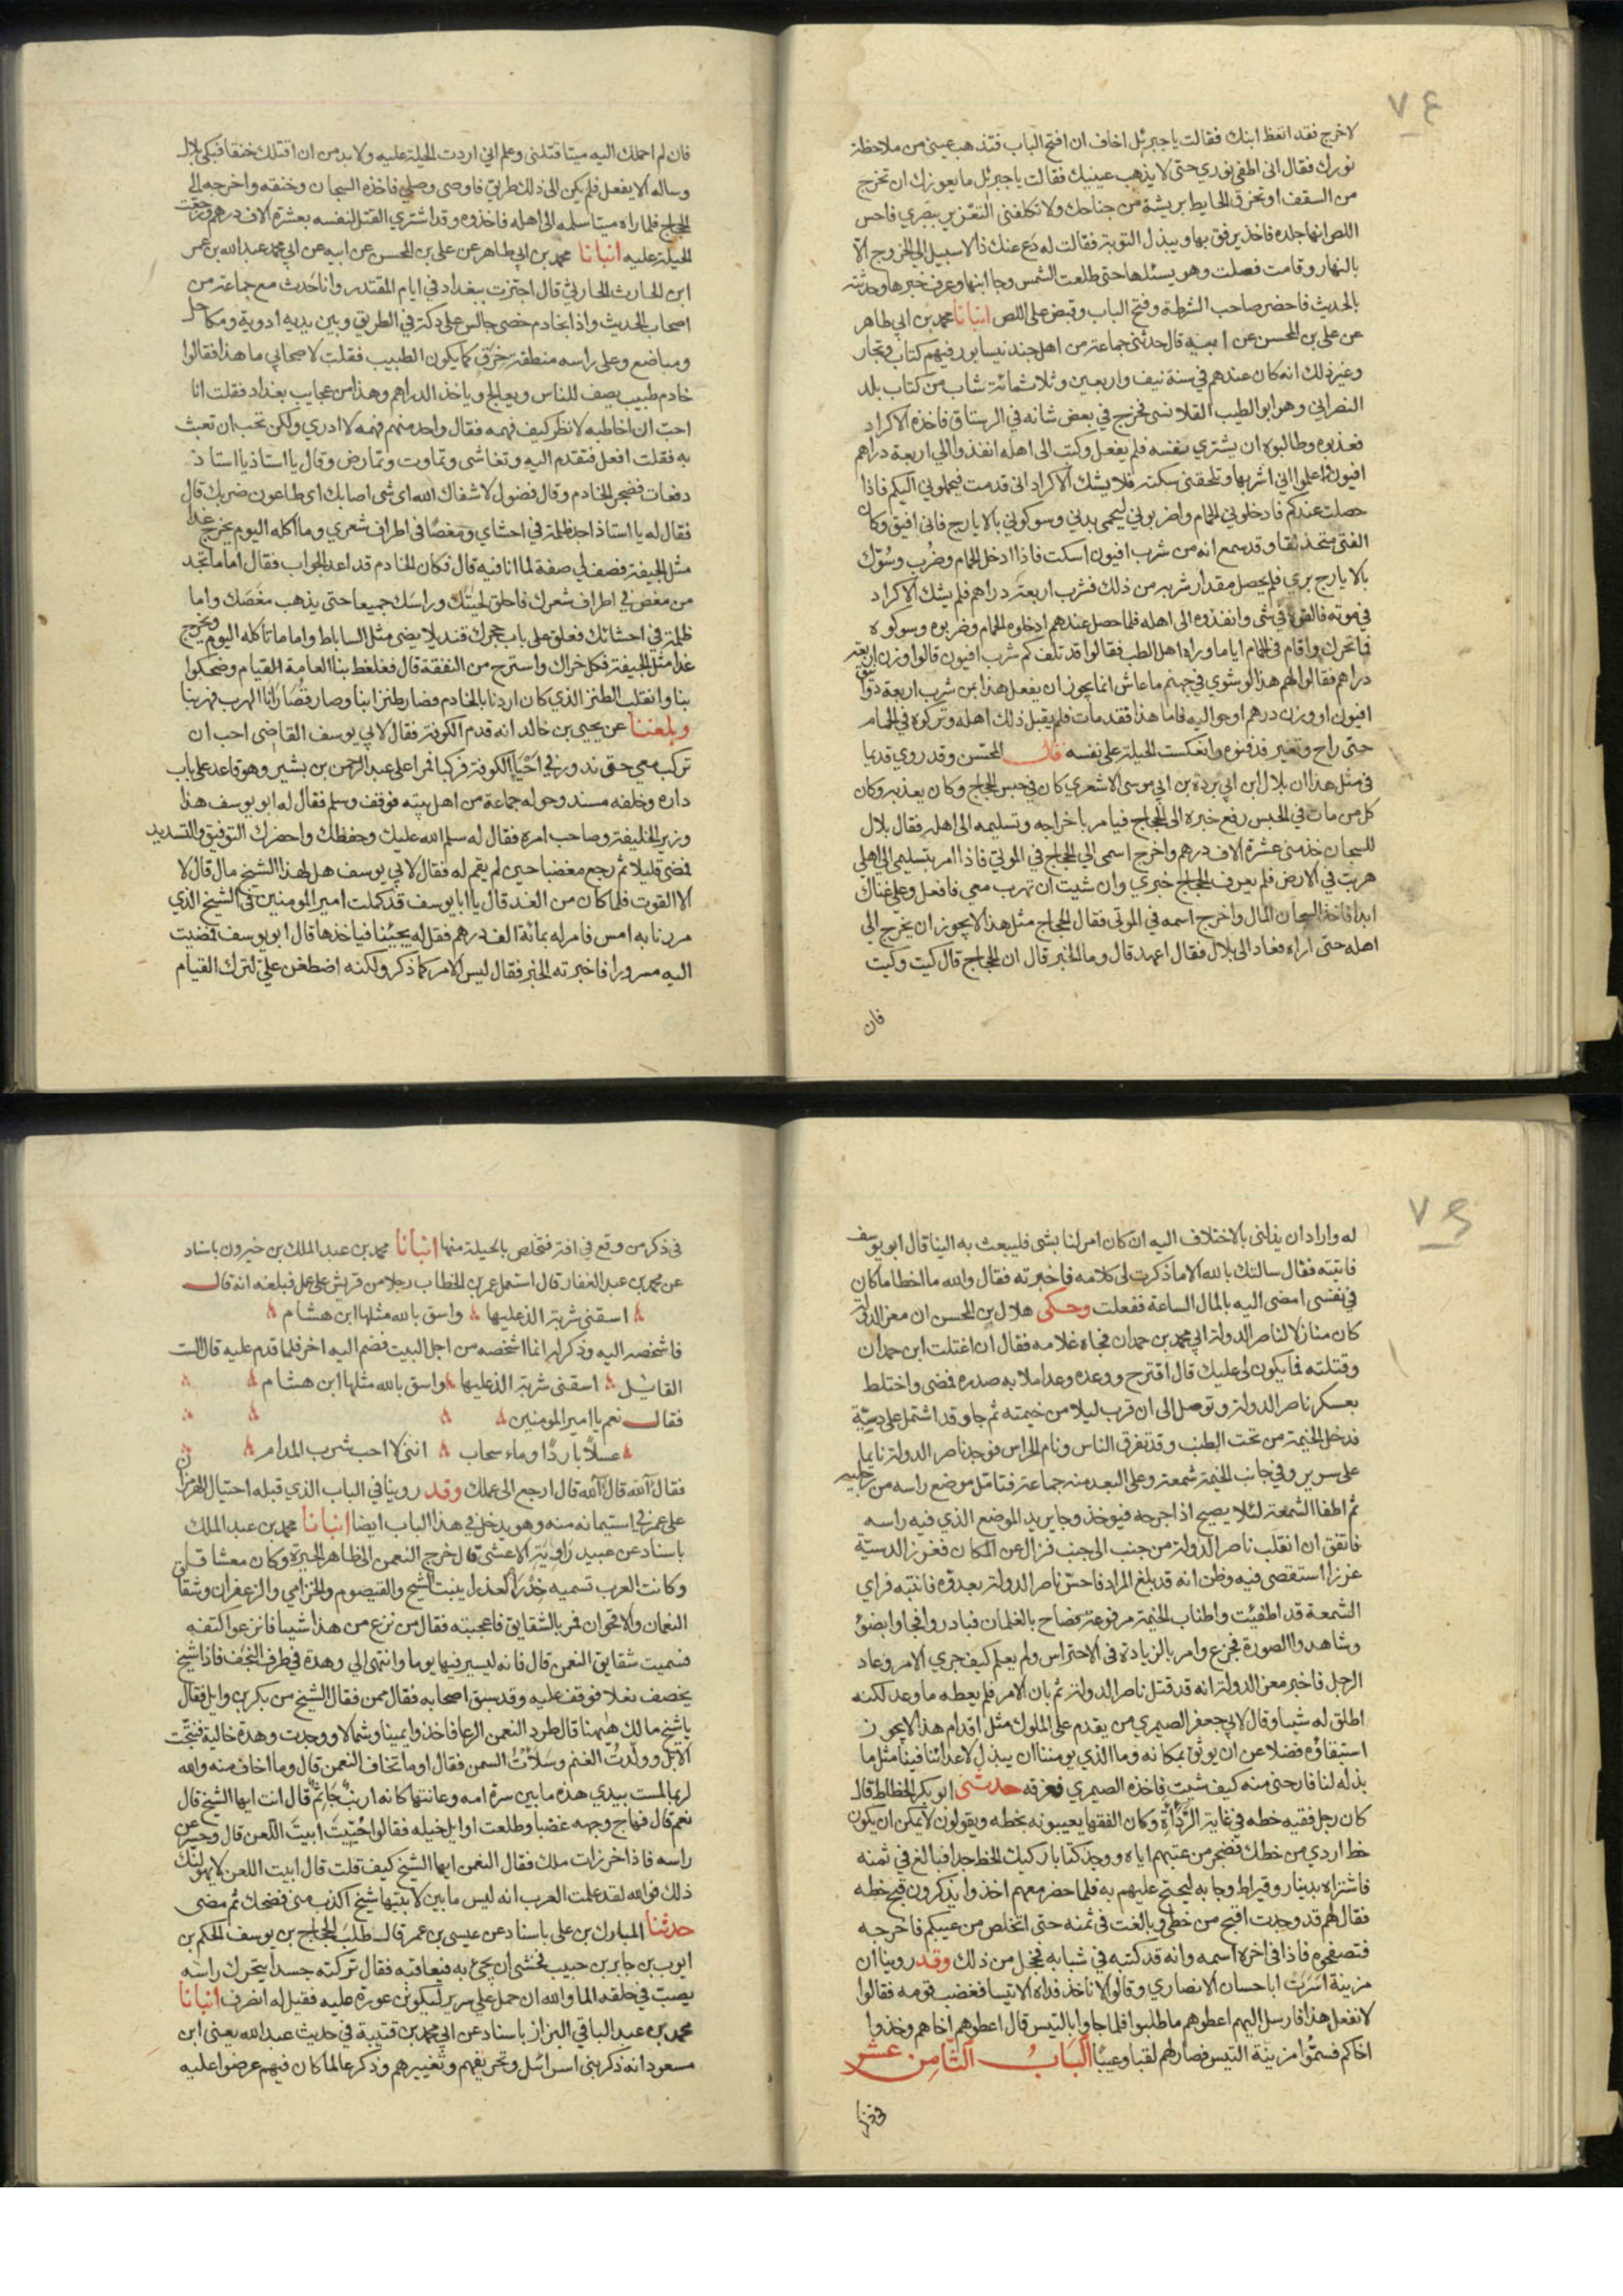 ٧٤
لاخرج فقد اتعظ ابنك فقالت يا جبرئيل اخاف ان افتح الباب فتذهب عيني من ملاحظة
نورك فقال اني اطفي نوري حتى لا يذهب عينيك فقالت يا جبرئيل ما يعوزك ان تخرج
من السقف او تخرق الحايط بريشة من جناحك ولا تكلفني التغرير ببصري فاحس
اللص انها جلده فاخذ يرفق بها ويبذل التوبة فقالت له دع عنك ذا لا سبيل الى الخروج الا
بالنهار وقامت فصلت وهو يسئلها حتى طلعت الشمس وجا ابنها وعرف خبرها وحدثته
بالحديث فاحضر صاحب الشرطة وفتح الباب وقبض على اللص انبانا محمد بن ابي طاهر
عن علي بن المحسن عن ابيه قال حدثني جماعة من اهل جند نيسابور فيهم كتاب وتجار
وغير ذلك انه كان عندهم في سنة نيف واربعين وثلاثمائة شاب من كتاب بلد
النصراني وهو ابو الطيب القلانسي فخرج في بعض شانه في الرستاق فاخذه الاكراد
فعذبوه وطالبوه ان يشتري نفسه فلم يفعل وكتب الى اهله انفذوا الي اربعة دراهم
افيون واعلموا اني اشربها وتلحقني سكتة فلا يشك الاكراد اني قدمت فيحملوني اليكم فاذا
حصلت عندكم فادخلوني الحمام واضربوني ليحمى بدني وسوكوني بالايارج فاني افيق وكان
الفتى متخلفا وقد سمع انه من شرب افيون اسكت فاذا ادخل الحمام وضرب وسوك
بالايارج بري فلم يحصل مقدار شربه من ذلك فشرب اربعة دراهم فلم يشك الاكراد
في موته فالقوه في شى وانفذوه الى اهله فلما حصل عندهم ادخلوه الحمام وضربوه وسوكوه
فما تحرك واقام في الحمام اياما وراه اهل الطب فقالوا قد تلف كم شرب افيون قالوا وزن اربعة
دراهم فقالوا لهم هذا لو شوي في جهنم ما عاش انما يجوز ان يفعل هذا بمن شرب اربعة دوانيق
افيون او وزن درهم او حواليه فاما هذا فقد مات فلم يقبل ذلك اهله وتركوه في الحمام
حتى راح وتغير فدفنوه وانعكست الحيلة على نفسه قال المحسن وقد روي قديما
في مثل هذا ان بلال ابن ابي بردة بن ابي موسى الاشعري كان في حبس الحجاج وكان يعذبه وكان
كل من مات في الحبس رفع خبره الى الحجاج فيامر باخراجه وتسليمه الى اهله فقال بلال
للسجان خذ مني عشرة الاف درهم واخرج اسمي الى الحجاج في الموتى فاذا امر بتسليمي الى اهلي
هربت في الارض فلم يعرف الحجاج خبري وان شيت ان تهرب معي فافعل وعلي غناك
ابدا فاخذ السجان المال واخرج اسمه في الموتى فقال الحجاج مثل هذا لا يجوز ان يخرج الى
اهله حتى اراه فعاد الى بلال فقال اعهد قال وما الخبر قال ان الحجاج قال كيت وكيت
فان
فان لم احملك اليه ميتا قتلني وعلم اني اردت الحيلة عليه ولا بد من ان اقتلك خنقا فبكى بلال
وساله الا يفعل فلم يكن الى ذلك طريق فاوصى وصلى فاخذه السجان وخنقه واخرجه الى
الحجاج فلما راه ميتا سلمه الى اهله فاخذوه وقد اشترى القتل لنفسه بعشرة الاف درهم ورجعت
الحيلة عليه انبانا محمد بن ابي طاهر عن علي بن المحسن عن ابيه عن ابي محمد عبد الله بن عمر
ابن الحارث الحارثي قال اجتزت ببغداد في ايام المقتدر وانا حدث مع جماعة من
اصحاب الحديث واذا بخادم خصي جالس على دكة في الطريق وبين يديه ادوية ومكاحل
ومباضع وعلى راسه منطقة خرق كما يكون الطبيب فقلت لاصحابي ما هذا فقالوا
خادم طبيب يصف للناس ويعالج وياخذ الدراهم وهذا من عجايب بغداد فقلت انا
احب ان اخاطبه لانظر كيف فهمه فقال واحد منهم فهمه لا ادري ولكن تحب ان تعبث
به فقلت افعل فتقدم اليه وتغاشى وتماوت وتمارض وقال يا استاذ يا استاذ
دفعات فضجر الخادم وقال فضول لا شفاك الله اي شى اصابك اي طاعون ضربك قال
فقال له يا استاذ اجد ظلمة في احشاي ومغصا في اطراف شعري وما اكله اليوم يخرج غدا
مثل الجيفة فصف لي صفة لما انا فيه قال فكان الخادم قد اعد الجواب فقال اما ما تجد
من مغص في اطراف شعرك فاحلق لحيتك وراسك جميعا حتى يذهب مغصك واما
ظلمة في احشائك فعلق على باب حجرك قنديلا يضى مثل الساباط واما ما تاكله اليوم ويخرج
غدا مثل الجيفة فكل خراك واسترح من النفقة قال فغلغط بنا العامة القيام وضحكوا
بنا وانقلب الطنز الذي كان اردنا بالخادم فصار طنزا بنا وصار قصارانا الهرب فهربنا
وبلغنا عن يحيى بن خالد انه قدم الكوفة فقال لابي يوسف القاضي احب ان
تركب معي حتى ندور في احياء الكوفة فركبا فمرا على عبد الرحمن بن بشير وهو قاعد على باب
داره وخلفه مسند وحوله جماعة من اهل بيته فوقف وسلم فقال له ابو يوسف هذا
وزير الخليفة وصاحب امره فقال له سلم الله عليك وحفظك واحضرك التوفيق والتسديد
فمضى قليلا ثم رجع مغضبا حين لم يقم له فقال لابي يوسف هل لهذا الشيخ مال قال لا
الا القوت فلما كان من الغد قال يا ابا يوسف قد كملت امير المومنين في الشيخ الذي
مررنا به امس فامر له بمائة الف درهم فقل له يجيئنا فياخذها قال ابو يوسف فمضيت
اليه مسرورا فاخبرته الخبر فقال ليس الامر كما ذكر ولكنه اضطغن علي لترك القيام
٧٥
له واراد ان يذلني بالاختلاف اليه ان كان امر لنا بشى فليبعث به الينا قال ابو يوسف
فاتيته فقال سالتك بالله الا ما ذكرت لي كلامه فاخبرته فقال والله ما اخطا ما كان
في نفسي امضى اليه بالمال الساعة ففعلت وحكى هلال بن المحسن ان معز الدولة
كان منازلا لناصر الدولة ابي محمد بن حمدان فجاه غلامه فقال ان اغتلت ابن حمدان
وقتلته فما يكون لي عليك قال اقترح ووعده وعدا ملا به صدره فمضى واختلط
بعسكر ناصر الدولة وتوصل الى ان قرب ليلا من خيمته ثم جا وقد اشتمل على دسيّة
فدخل الخيمة من تحت الطنب وقد تفرق الناس ونام الحراس فوجد ناصر الدولة نايما
على سرير وفي جانب الخيمة شمعة وعلى البعد منه جماعة فتامل موضع راسه من رجليه
ثم اطفا الشمعة لئلا يصيح اذا جرحه فيوخذ وجا يريد الموضع الذي فيه راسه
فاتفق ان انقلب ناصر الدولة من جنب الى جنب فزال عن المكان فغرز الدسيّة
غرزا استقصى فيه وظن انه قد بلغ المراد فاحس ناصر الدولة بعدوّه فانتبه فراي
الشمعة قد اطفيت واطناب الخيمة مرفوعة فصاح بالغلمان فبادروا فجاوا بضوء
وشاهدوا الصورة فجزع وامر بالزيادة في الاحتراس ولم يعلم كيف جرى الامر وعاد
الرجل فاخبر معز الدولة انه قد قتل ناصر الدولة ثم بان الامر فلم يعطه ما وعد لكنه
اطلق له شيا وقال لابي جعفر الصيمري من يقدم على الملوك مثل اقدام هذا لا يجوز
استبقاؤه فضلا عن ان يوثق بمكانه وما الذي يومننا ان يبذل لاعدائنا فينا مثل ما
بذله لنا فارحني منه كيف شيت فاخذه الصيمري فغرقه حدثني ابو بكر الخطاط قال
كان رجل فقيه خطه في غاية الرداءة وكان الفقها يعيبونه بخطه ويقولون لا يمكن ان يكون
خط اردي من خطك فضجر من عتبهم اياه ووجد كتابا ركيك الخط جدا فبالغ في ثمنه
فاشتراه بدينار وقيراط وجا به ليحتج عليهم به فلما حضر معهم اخذوا يذكرون قبح خطه
فقال لهم قد وجدت اقبح من خطي وبالغت في ثمنه حتى اتخلص من عيبكم فاخرجه
فتصفحوه فاذا في اخره اسمه وانه قد كتبه في شبابه فخجل من ذلك وقد روينا ان
مزينة اسرت ابا حسان الانصاري وقالوا لا ناخذ فداه الا تيسا فغضب قومه فقالوا
لا نفعل هذا فارسل اليهم اعطوهم ما طلبوا فلما جاوا بالتيس قال اعطوهم اخاهم وخذوا
اخاكم فسمّوا مزينة التيس فصار لهم لقبا وعيبا الباب الثامن عشر
في ذكر
في ذكر من وقع في افة فتخلص بالحيلة منها انبانا محمد بن عبد الملك بن خيرون باسناد
عن محمد بن عبد الغفار قال استعمل عمر بن الخطاب رجلا من قريش على عمل فبلغه انه قال
اسقني شربة الذ عليها واسق بالله مثلها ابن هشام
فاشخصه اليه وذكر له انما اشخصه من اجل البيت فضم اليه اخر فلما قدم عليه قال الست
القائيل اسقني شربة الذ عليها واسق بالله مثلها ابن هشام
فقال نعم يا امير المومنين
عسلا باردا وماء سحاب انني لا احب شرب المدام
فقال آلله قال آلله قال ارجع الى عملك وقد روينا في الباب الذي قبله احتيال الهرمزان
على عمر في استيمانه منه وهو يدخل في هذا الباب ايضا انبانا محمد بن عبد الملك
باسناد عن عبيد راوية الاعشى قال خرج النعمن الى ظاهر الحيرة وكان معشابا
وكانت العرب تسميه خد العذرا ينبت الشيح والقيصوم والخزامي والزعفران وشقايق
النعمان والاقحوان فمر بالشقايق فاعجبته فقال من نزع من هذا شيا فانزعوا كتفه
فسميت شقايق النعمن قال فانه ليسير فيها يوما وانتهى الى وهدة في طرف النجف فاذا شيخ
يخصف نعلا فوقف عليه وقد سبق اصحابه فقال ممن فقال الشيخ من بكر بن وايل فقال
يا شيخ مالك هيهنا قال طرد النعمن الرعا فاخذوا يمينا وشمالا ووجدت وهدة خالية فنتجت
الابل وولّدت الغنم وسلأت السمن فقال اوما تخاف النعمن قال وما اخاف منه والله
لربما لمست بيدي هذه ما بين سرة امه وعانتها كانه ارنب جاثم قال انت ايها الشيخ قال
نعم قال فهاج وجهه غضبا وطلعت اوايل خيله فقالوا حُيِّيت ابيت اللعن قال وحسر عن
راسه فاذا خرزات ملك فقال النعمن ايها الشيخ كيف قلت قال ابيت اللعن لا يهولنك
ذلك فوالله لقد علمت العرب انه ليس ما بين لابتيها شيخ اكذب مني فضحك ثم مضى
حدثنا المبارك بن علي باسناد عن عيسى بن عمر قال طلب الحجاج بن يوسف الحكم بن
ايوب بن جابر بن حبيب فخشى ان يجي به فيعاقبه فقال تركته جسدا يتحرك راسه
يصب في حلقه الما والله ان حمل على سرير ليكونن عورة عليه فقيل له انصرف انبانا
محمد بن عبد الباقي البزاز باسناد عن ابي محمد بن قتيبة في حديث عبد الله يعني ابن
مسعود انه ذكر بني اسرائل وتحريفهم وتغييرهم وذكر عالما كان فيهم عرضوا عليه